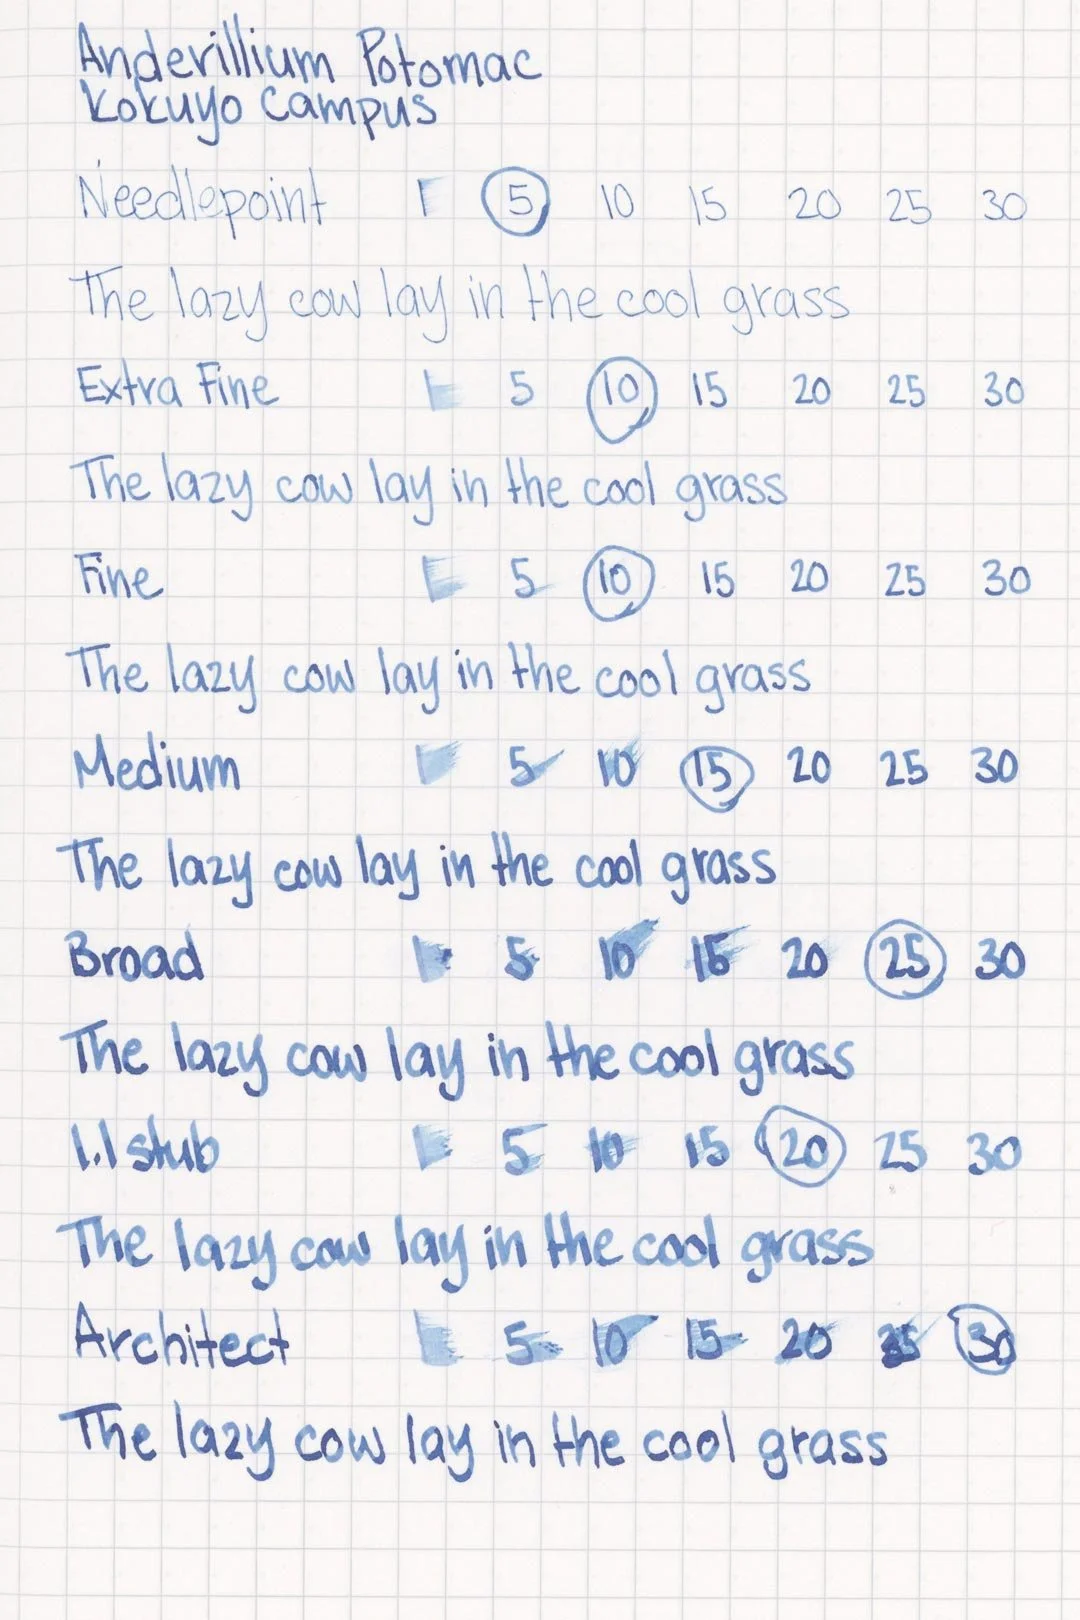 Anderillium Potomac
Kokuyo Campus
Needlepoint 5 10 15 20 25 30
The lazy cow lay in the cool grass
Extra Fine 5 10 15 20 25 30
The lazy cow lay in the cool grass
Fine 5 10 15 20 25 30
The lazy cow lay in the cool grass
Medium 5 10 15 20 25 30
The lazy cow lay in the cool grass
Broad 5 10 15 20 25 30
The lazy cow lay in the cool grass
1.1 stub 5 10 15 20 25 30
The lazy cow lay in the cool grass
Architect 5 10 15 20 25 30
The lazy cow lay in the cool grass